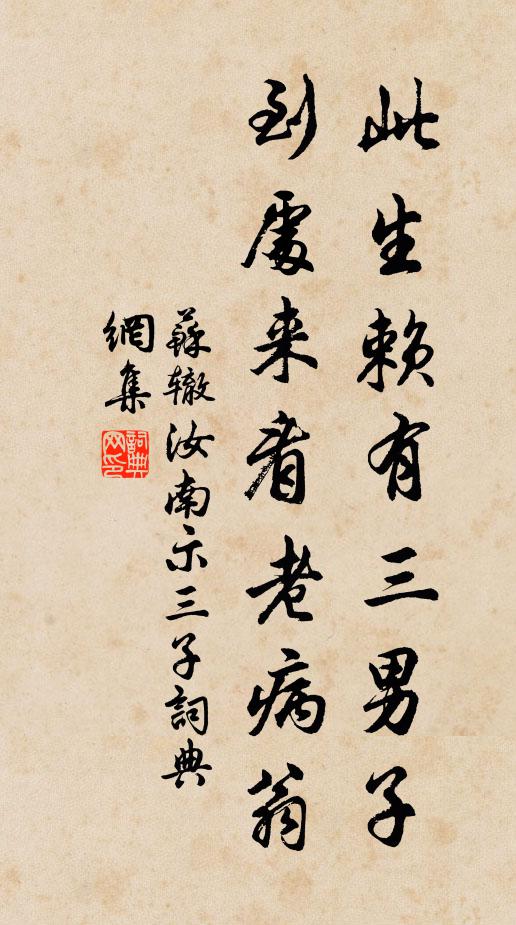 此生赖有三男子
到處来看老病翁
蘇辙汝南示三子詞典
網集
詞典
网印